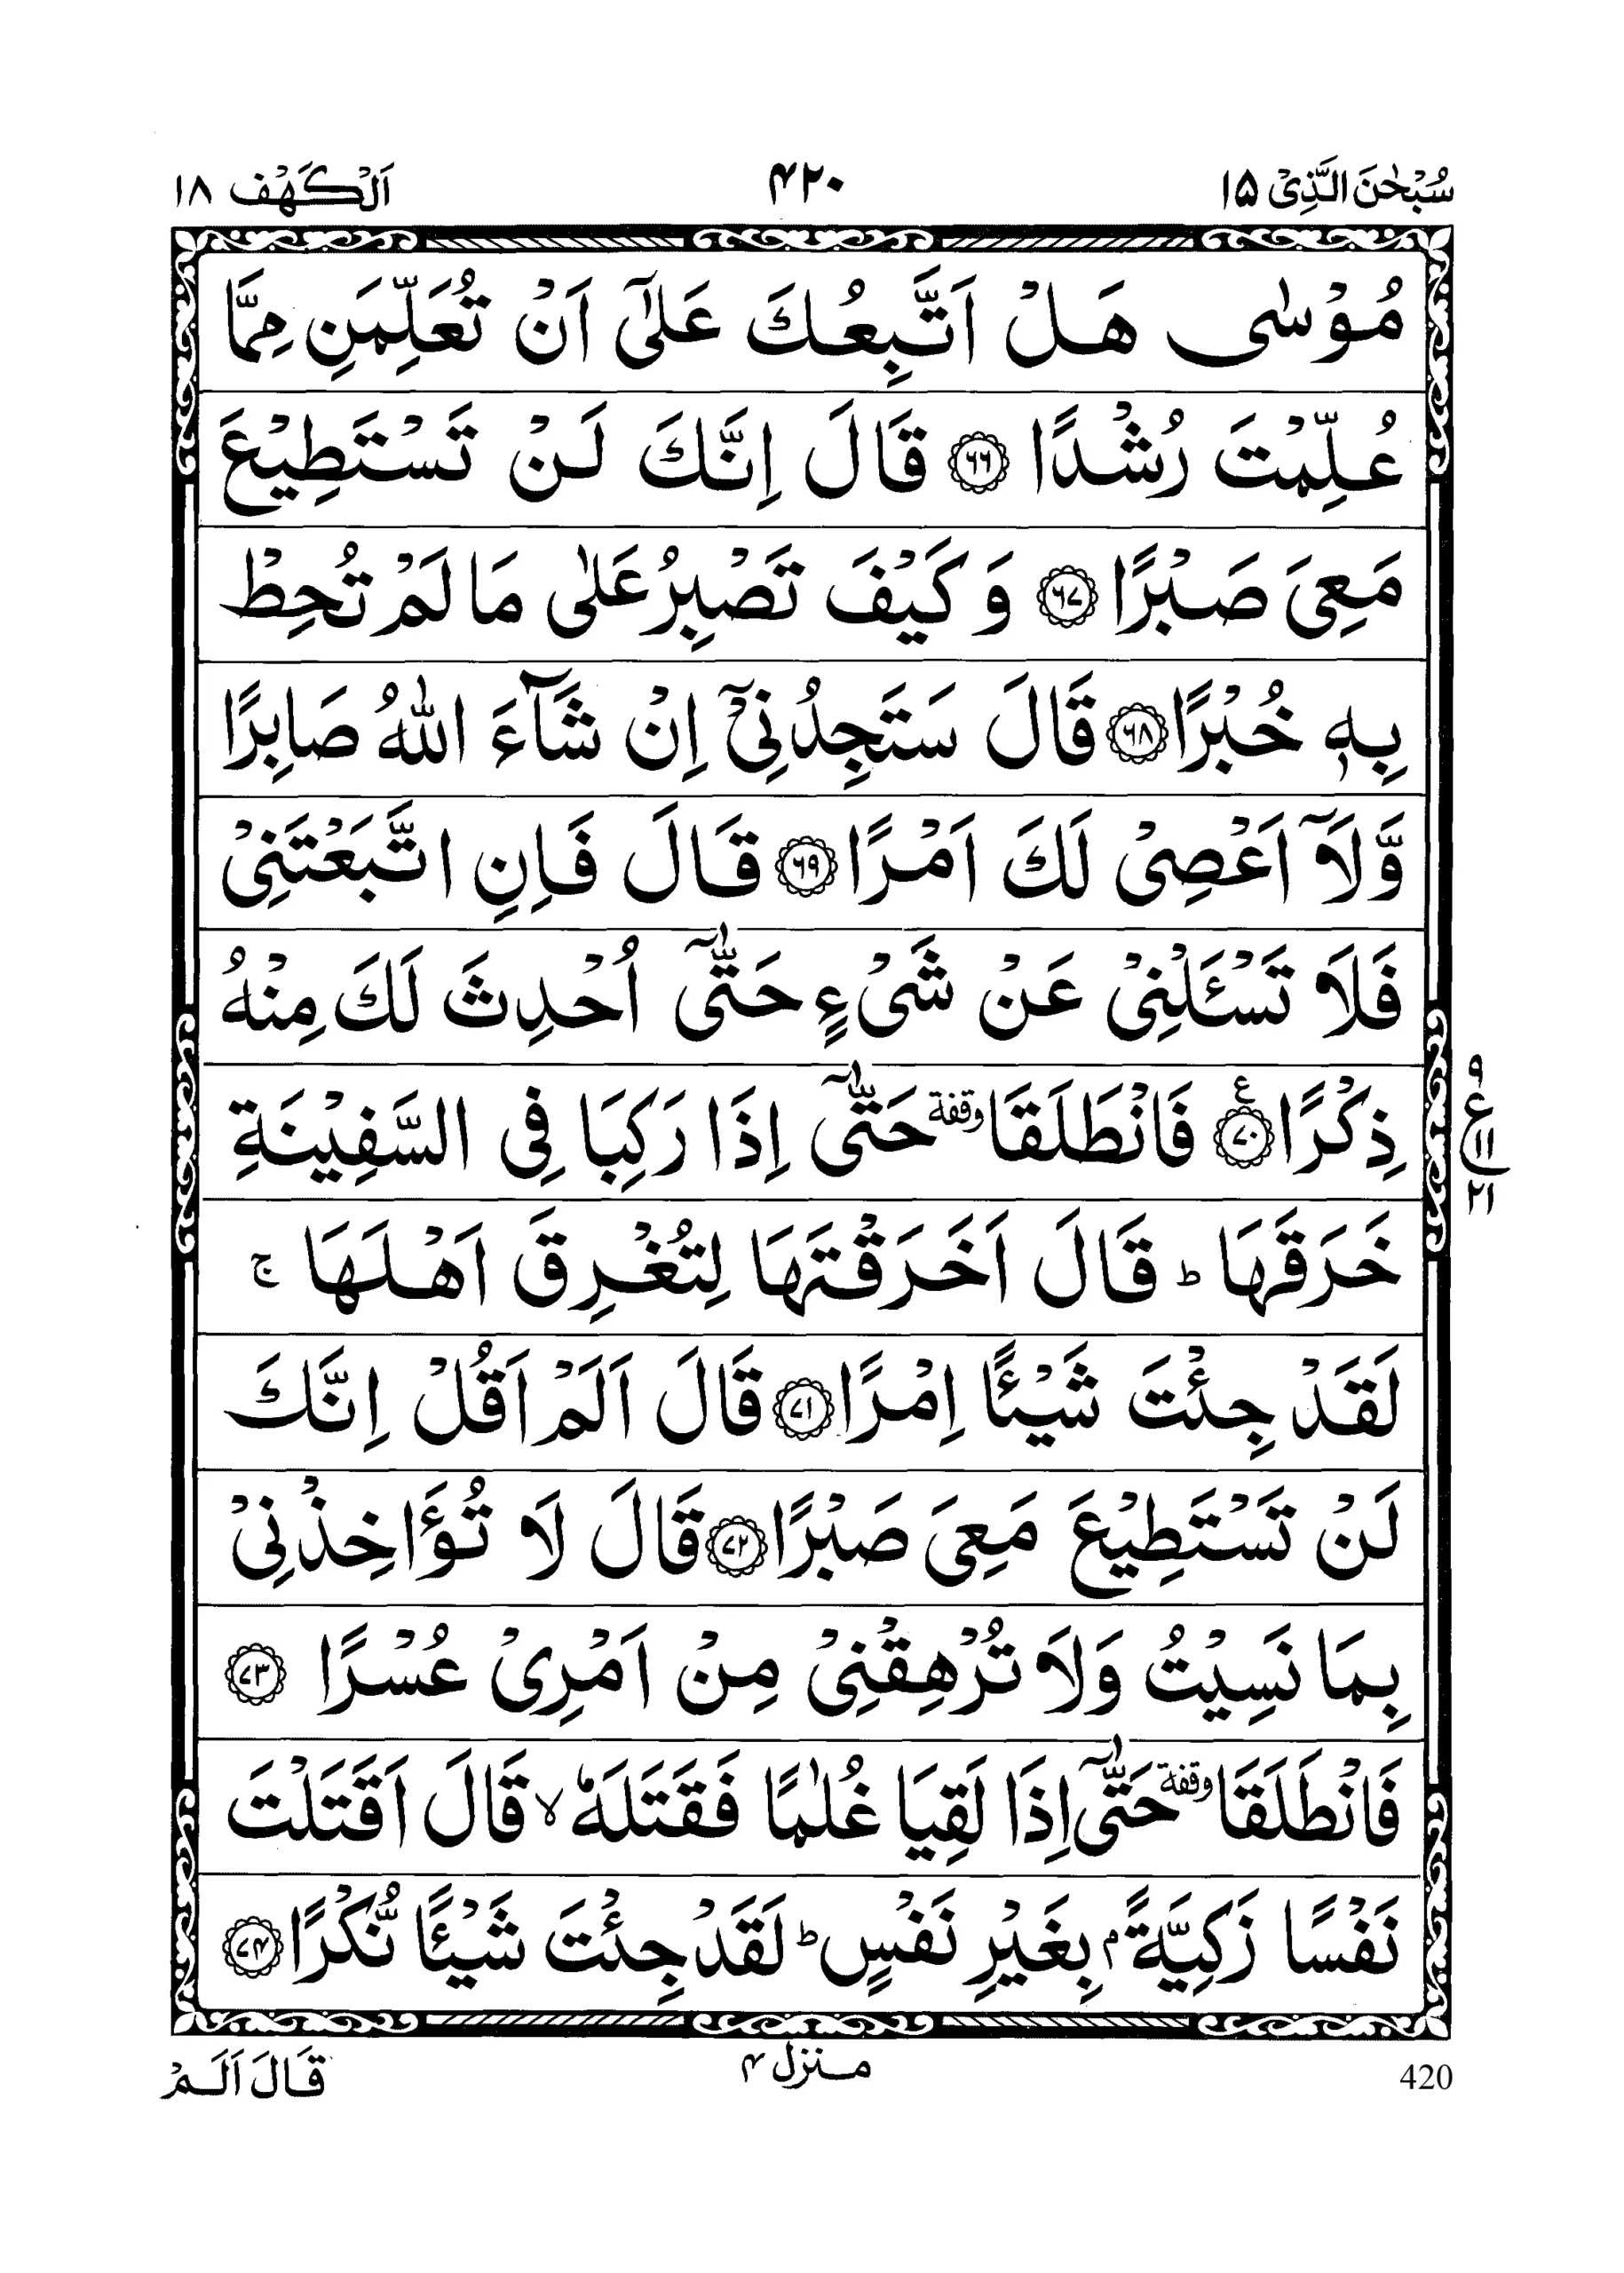 سُبْحٰنَ الَّذِیْ ۱۵ ۴۲۰ اَلْكَهْف ۱۸
مُوْسٰى هَلْ اَتَّبِعُكَ عَلٰۤى اَنْ تُعَلِّمَنِ مِمَّا
عُلِّمْتَ رُشْدًا ﴿۶۶﴾ قَالَ اِنَّكَ لَنْ تَسْتَطِيْعَ
مَعِیَ صَبْرًا ﴿۶۷﴾ وَ كَيْفَ تَصْبِرُ عَلٰى مَا لَمْ تُحِطْ
بِهٖ خُبْرًا ﴿۶۸﴾ قَالَ سَتَجِدُنِیْۤ اِنْ شَآءَ اللّٰهُ صَابِرًا
وَّلَاۤ اَعْصِیْ لَكَ اَمْرًا ﴿۶۹﴾ قَالَ فَاِنِ اتَّبَعْتَنِیْ
فَلَا تَسْـَٔلْنِیْ عَنْ شَیْءٍ حَتّٰۤى اُحْدِثَ لَكَ مِنْهُ
ذِكْرًا ﴿۷۰﴾ ع فَانْطَلَقَا وقفة حَتّٰۤى اِذَا رَكِبَا فِی السَّفِيْنَةِ
۹ ع ۱۱ ۲۱
خَرَقَهَا ؕ قَالَ اَخَرَقْتَهَا لِتُغْرِقَ اَهْلَهَا ۚ
لَقَدْ جِئْتَ شَيْـًٔا اِمْرًا ﴿۷۱﴾ قَالَ اَلَمْ اَقُلْ اِنَّكَ
لَنْ تَسْتَطِيْعَ مَعِیَ صَبْرًا ﴿۷۲﴾ قَالَ لَا تُؤَاخِذْنِیْ
بِمَا نَسِيْتُ وَلَا تُرْهِقْنِیْ مِنْ اَمْرِیْ عُسْرًا ﴿۷۳﴾
فَانْطَلَقَا وقفة حَتّٰۤى اِذَا لَقِيَا غُلٰمًا فَقَتَلَهٗ ۙ قَالَ اَقَتَلْتَ
نَفْسًا زَكِيَّةًۢ بِغَيْرِ نَفْسٍ ؕ لَقَدْ جِئْتَ شَيْـًٔا نُّكْرًا ﴿۷۴﴾
420 منزل ۴ قَالَ اَلَمْ